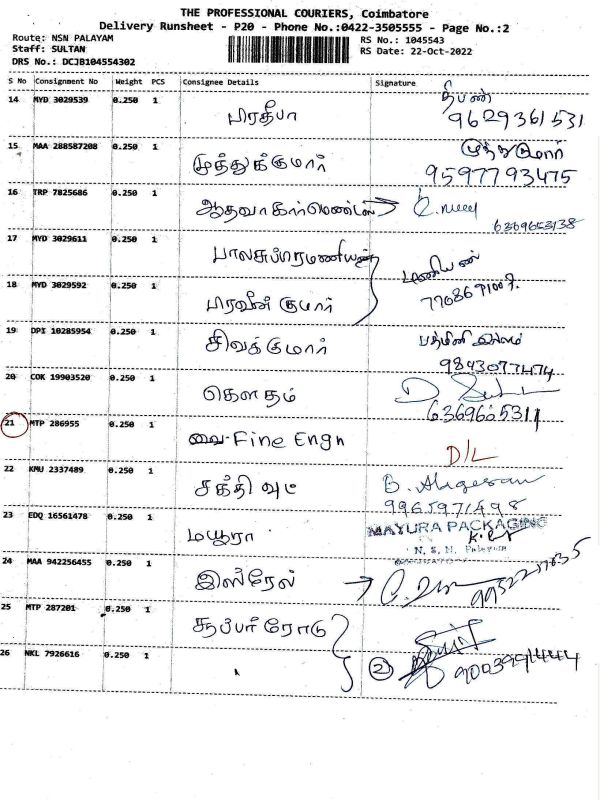 THE PROFESSIONAL COURIERS, Coimbatore
Delivery Runsheet - P20 - Phone No.:0422-3505555 - Page No.:2
Route: NSN PALAYAM
RS No.: 1045543
Staff: SULTAN
RS Date: 22-Oct-2022
DRS No.: DCJB104554302
S No Consignment No Weight PCS Consignee Details Signature
14 MYD 3029539 0.250 1 பிரதீபா தீபன்
9629361531
15 MAA 288587208 0.250 1 முத்துக்குமார் முத்துகுமார்
9597793475
16 TRP 7825686 0.250 1 ஆதவா கார்மெண்ட்ஸ்
6369653138
17 MYD 3029611 0.250 1 பாலசுப்ரமணியன் மணியன்
18 MYD 3029592 0.250 1 பிரவீன் குமார்
19 DPI 10285954 0.250 1 சிவக்குமார்
9843077474
20 COK 19903520 0.250 1 கௌதம்
6369605311
21 MTP 286955 0.250 1 வை. Fine Engn D/L
22 KMU 2337489 0.250 1 சக்தி வுட்
9965971498
23 EDQ 16561478 0.250 1 மயூரா MAYURA PACKAGING
N. S. N. Palayam
24 MAA 942256455 0.250 1 இஸ்ரேல்
25 MTP 287201 0.250 1 சூப்பர் ரோடு
26 NKL 7926616 0.250 1 2
9003991444